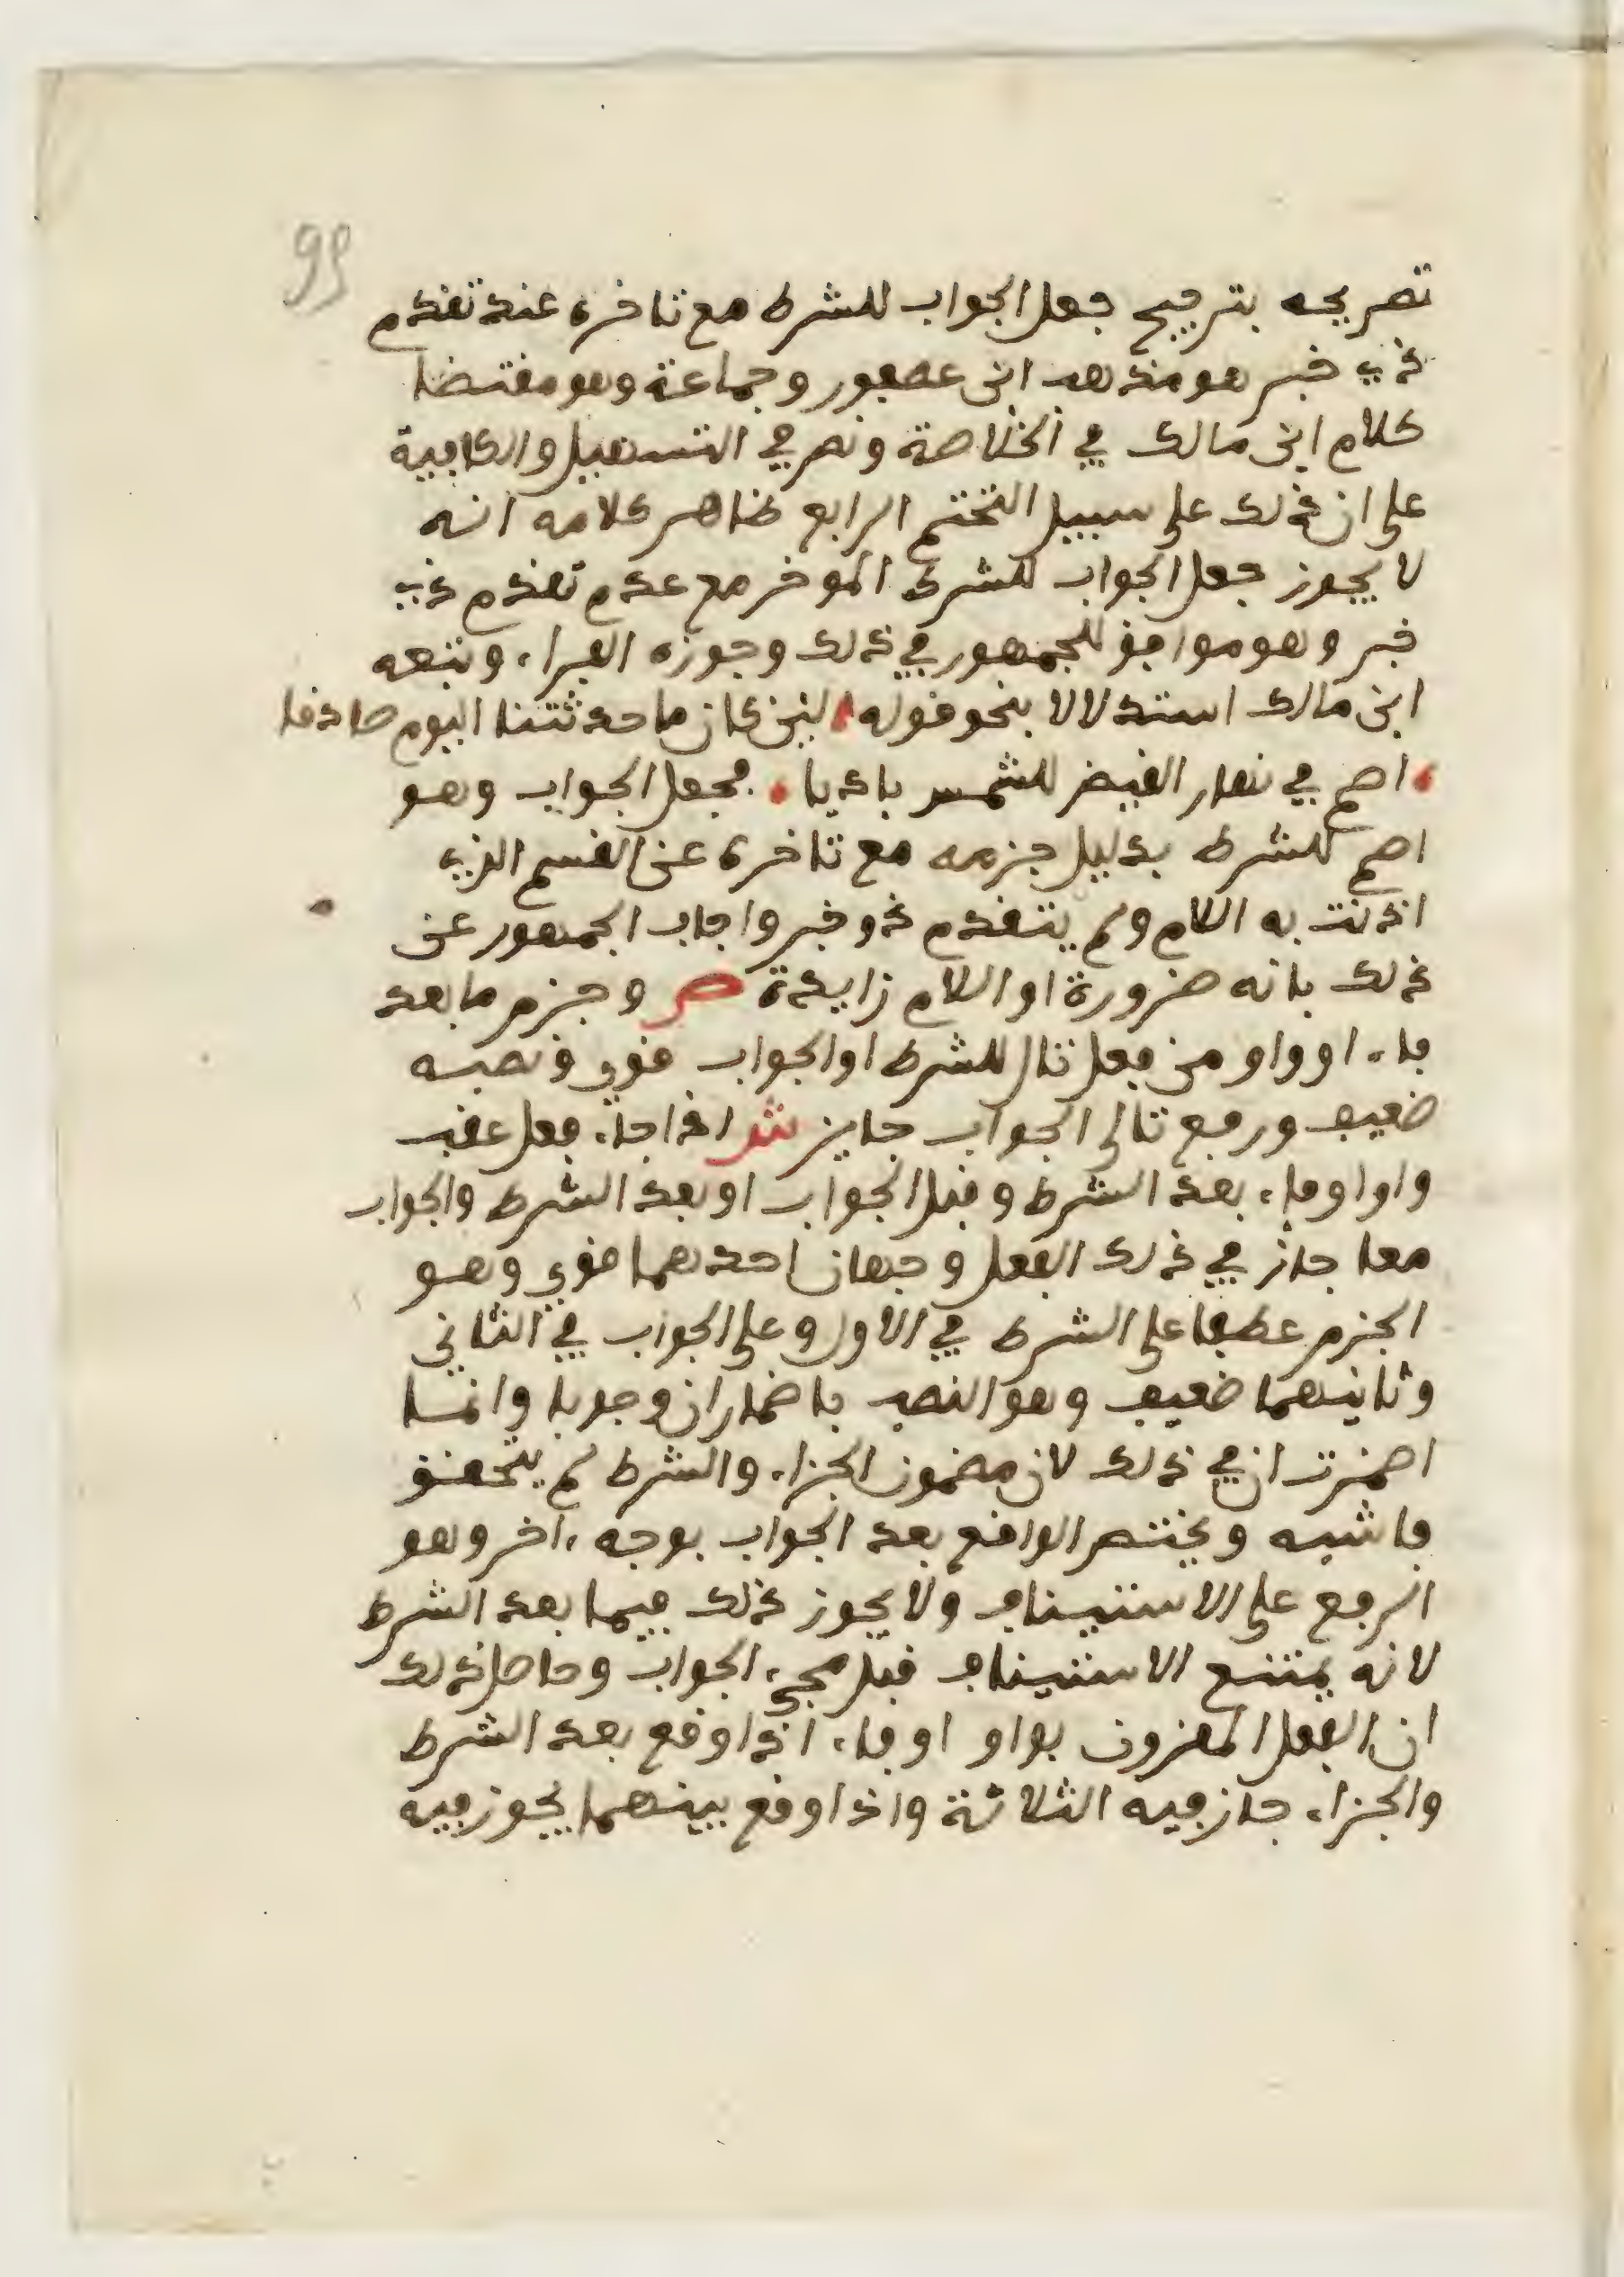 99
تصريحه بترجيح جعل الجواب للشرط مع تاخره عند تقدم
ذي خبر هو مذهب ابن عصفور وجماعة وهو مقتضا
كلام ابن مالك في الخلاصة ونص في التسهيل والكافية
على ان ذلك على سبيل التحتم الرابع ظاهر كلامه انه
لا يجوز جعل الجواب للشرط الموخر مع عدم تقدم ذي
خبر وهو موافق للجمهور في ذلك وجوزه الفراء وتبعه
ابن مالك استدلالا بنحو قوله لين كان ما حدثتنا اليوم صادقا
اصم في نهار القيض للشمس باديا فجعل الجواب وهو
اصم للشرط بدليل جزمه مع تاخره عن القسم الذي
اذنت به اللام ولم يتقدم ذو خبر واجاب الجمهور عن
ذلك بانه ضرورة او اللام زايدة ص وجزم ما بعد
فاء او واو من فعل تال للشرط او الجواب قوي ونصبه
ضعيف ورفع تالى الجواب جايز ش اذا جاء فعل عقب
واو او فاء بعد الشرط وقبل الجواب او بعد الشرط والجواب
معا جاز في ذلك الفعل وجهان احدهما قوي وهو
الجزم عطفا على الشرط في الاول وعلى الجواب في الثاني
وثانيهما ضعيف وهو النصب باضمار ان وجوبا وانما
اضمرت ان في ذلك لان مضمون الجزاء والشرط لم يتحقق
فاشبه ويختص الواقع بعد الجواب بوجه ءاخر وهو
الرفع على الاستيناف ولا يجوز ذلك فيما بعد الشرط
لانه يمتنع الاستيناف قبل مجيء الجواب وحاصل ذلك
ان الفعل المقرون بواو او فاء اذا وقع بعد الشرط
والجزاء جاز فيه الثلاثة واذا وقع بينهما يجوز فيه